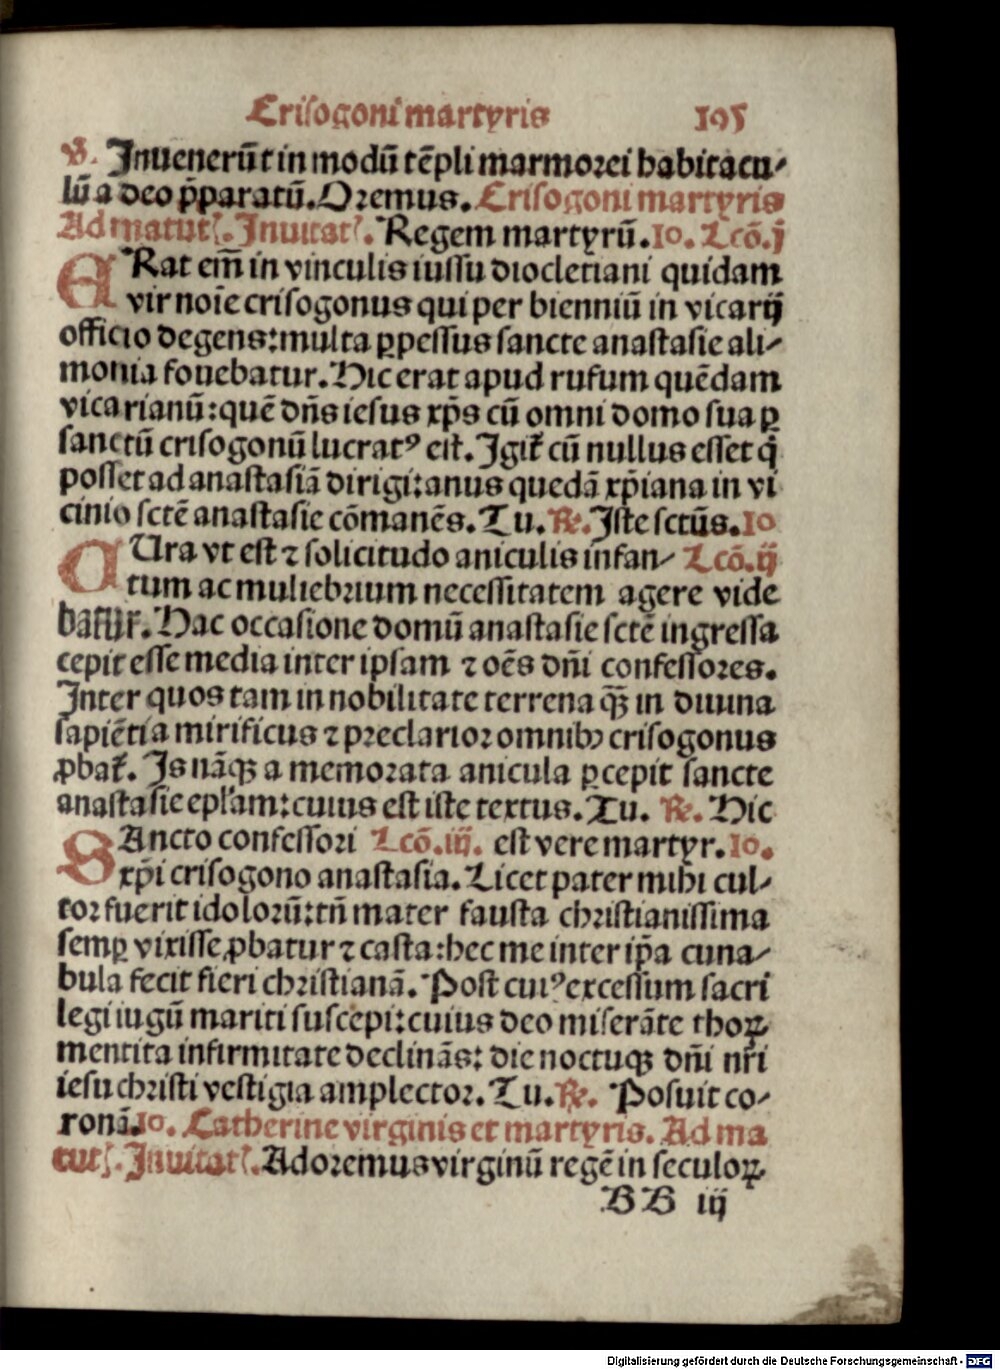 Crisogoni martyris 195
℣. Inuenerūt in modū tēpli marmorei habitacu-
lū a deo p̄paratū. Oremus. Crisogoni martyris
Ad matutꝭ. Inuitatꝭ. Regem martyrū. 10. Lcō. j
ERat em̄ in vinculis iussu diocletiani quidam
vir noīe crisogonus qui per bienniū in vicarij
officio degens: multa ꝑpessus sancte anastasie ali-
monia fouebatur. Hic erat apud rufum quēdam
vicarianū: quē dn̄s iesus xp̄s cū omni domo sua ꝑ
sanctū crisogonū lucratꝰ est. Igit̄ cū nullus esset q̇
posset ad anastasiā dirigi: anus quedā xp̄iana in vi
cinio sctē anastasie cōmanēs. Tu. ℟. Iste sctūs. 10
CUra vt est ⁊ solicitudo aniculis infan- Lcō. ij
tum ac muliebrium necessitatem agere vide
batur̄. Hac occasione domū anastasie sctē ingressa
cepit esse media inter ipsam ⁊ oēs dn̄i confessores.
Inter quos tam in nobilitate terrena qꝫ̄ in diuina
sapiētia mirificus ⁊ preclarior omnibꝰ crisogonus
ꝓbat̄. Is nāqꝫ a memorata anicula ꝑcepit sancte
anastasie epl̄am: cuius est iste textus. Tu. ℟. Hic
SAncto confessori Lcō. iij. est vere martyr. 10.
xp̄i crisogono anastasia. Licet pater mihi cul-
tor fuerit idolorū: tn̄ mater fausta christianissima
semꝑ vixisse ꝓbatur ⁊ casta: hec me inter ip̄a cuna-
bula fecit fieri christianā. Post cuiꝰ excessum sacri
legi iugū mariti suscepi: cuius deo miserāte thoꝝ
mentita infirmitate declinās: die noctuqꝫ dn̄i nr̄i
iesu christi vestigia amplector. Tu. ℟. Posuit co-
ronā. 10. Catherine virginis et martyris. Ad ma
tutꝭ. Inuitatꝭ. Adoremus virginū regē in seculoꝝ
BB iij
Digitalisierung gefördert durch die Deutsche Forschungsgemeinschaft - DFG